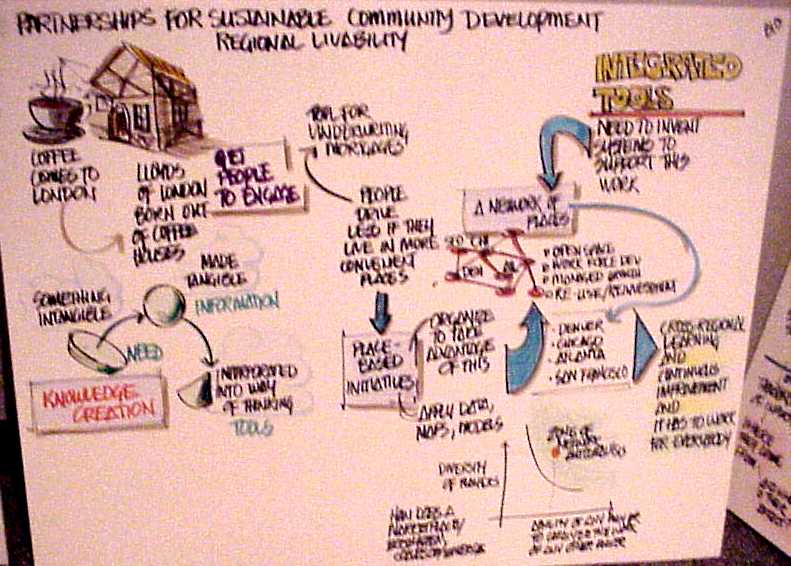 PARTNERSHIPS FOR SUSTAINABLE COMMUNITY DEVELOPMENT
REGIONAL LIVABILITY
COFFEE
COMES TO
LONDON
LLOYDS
OF LONDON
BORN OUT
OF COFFEE
HOUSES
GET
PEOPLE
TO ENGAGE
TOOL FOR
UNDERWRITING
MORTGAGES
PEOPLE
DRIVE
LESS IF THEY
LIVE IN MORE
CONVENIENT
PLACES
INTEGRATED
TOOLS
NEED TO INVENT
SYSTEMS TO
SUPPORT THIS
WORK
A NETWORK OF
PLACES
CHI
DEN
OPEN SPACE
WORK FORCE DEV
MANAGED GROWTH
SOMETHING
INTANGIBLE
MADE
TANGIBLE
INFORMATION
NEED
KNOWLEDGE
CREATION
INCORPORATED
INTO WAY
OF THINKING
TOOLS
PLACE-
BASED
INITIATIVES
ORGANIZE
TO TAKE
ADVANTAGE
OF THIS
APPLY DATA,
MAPS, MODELS
- DENVER
- CHICAGO
- ATLANTA
- SAN FRANCISCO
CROSS-REGIONAL
LEARNING
AND
CONTINUOUS
IMPROVEMENT
AND
IT HAS TO WORK
FOR EVERYBODY
ZONE OF
NETWORK
DIVERSITY
OF
HOW DOES A
ABILITY OF ANY
TO
OF ANY OTHER